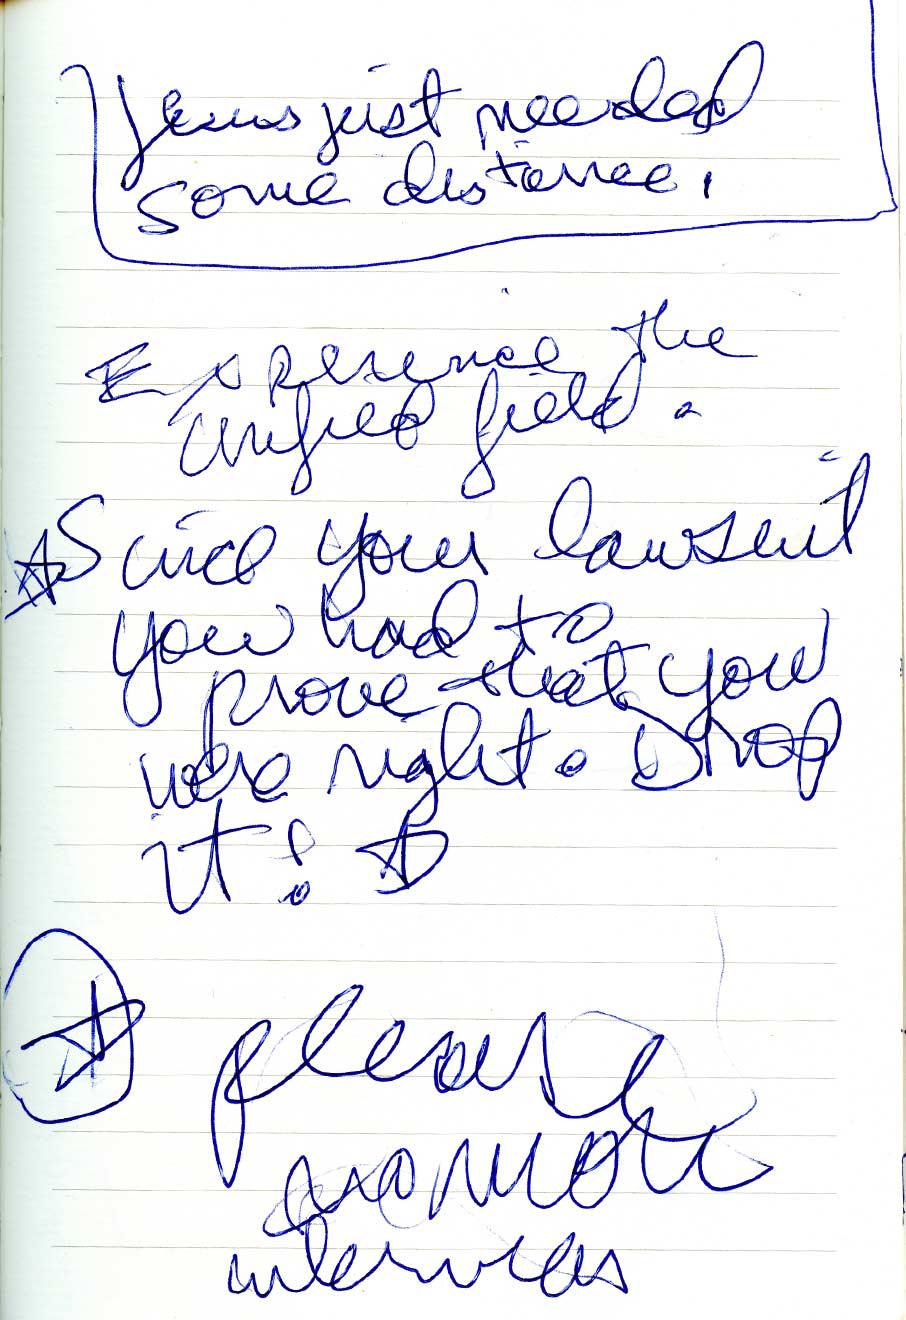 Jesus just needed
some distance.
Experience the
unified field.
Since your lawsuit
you had to
prove that you
were right. Drop
it!
please
no more
interviews